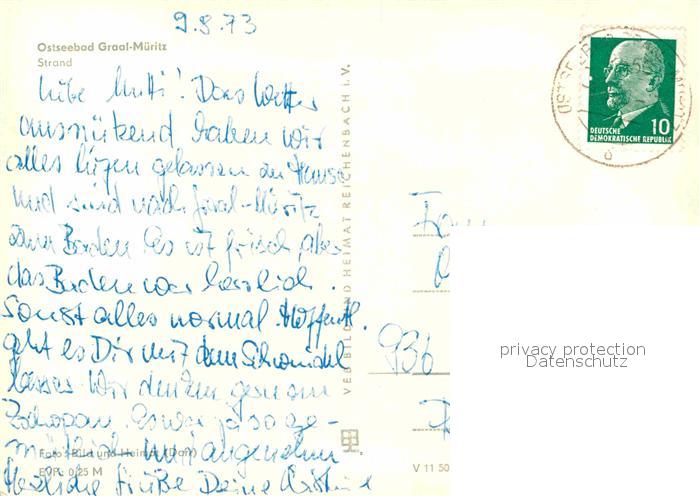 9.8.73
Ostseebad Graal-Müritz
Strand
Liebe Mutti! Das Wetter
ausnützend haben wir
alles liegen gelassen zu Hause
und sind nach Graal-Müritz
zum Baden. Es ist frisch, aber
das Baden war herrlich.
Sonst alles normal. Hoffentl.
geht es Dir mit dem Schwindel
besser. Wir denken gern an
Zschopau. Es war ja so ge-
mütlich und angenehm
Herzliche Grüße Deine
Foto: Bild und Heimat (Darr)
EVP: 0,25 M
VEB BILD UND HEIMAT REICHENBACH I. V.
10
DEUTSCHE
DEMOKRATISCHE REPUBLIK
936
privacy protection
Datenschutz
V 11 50